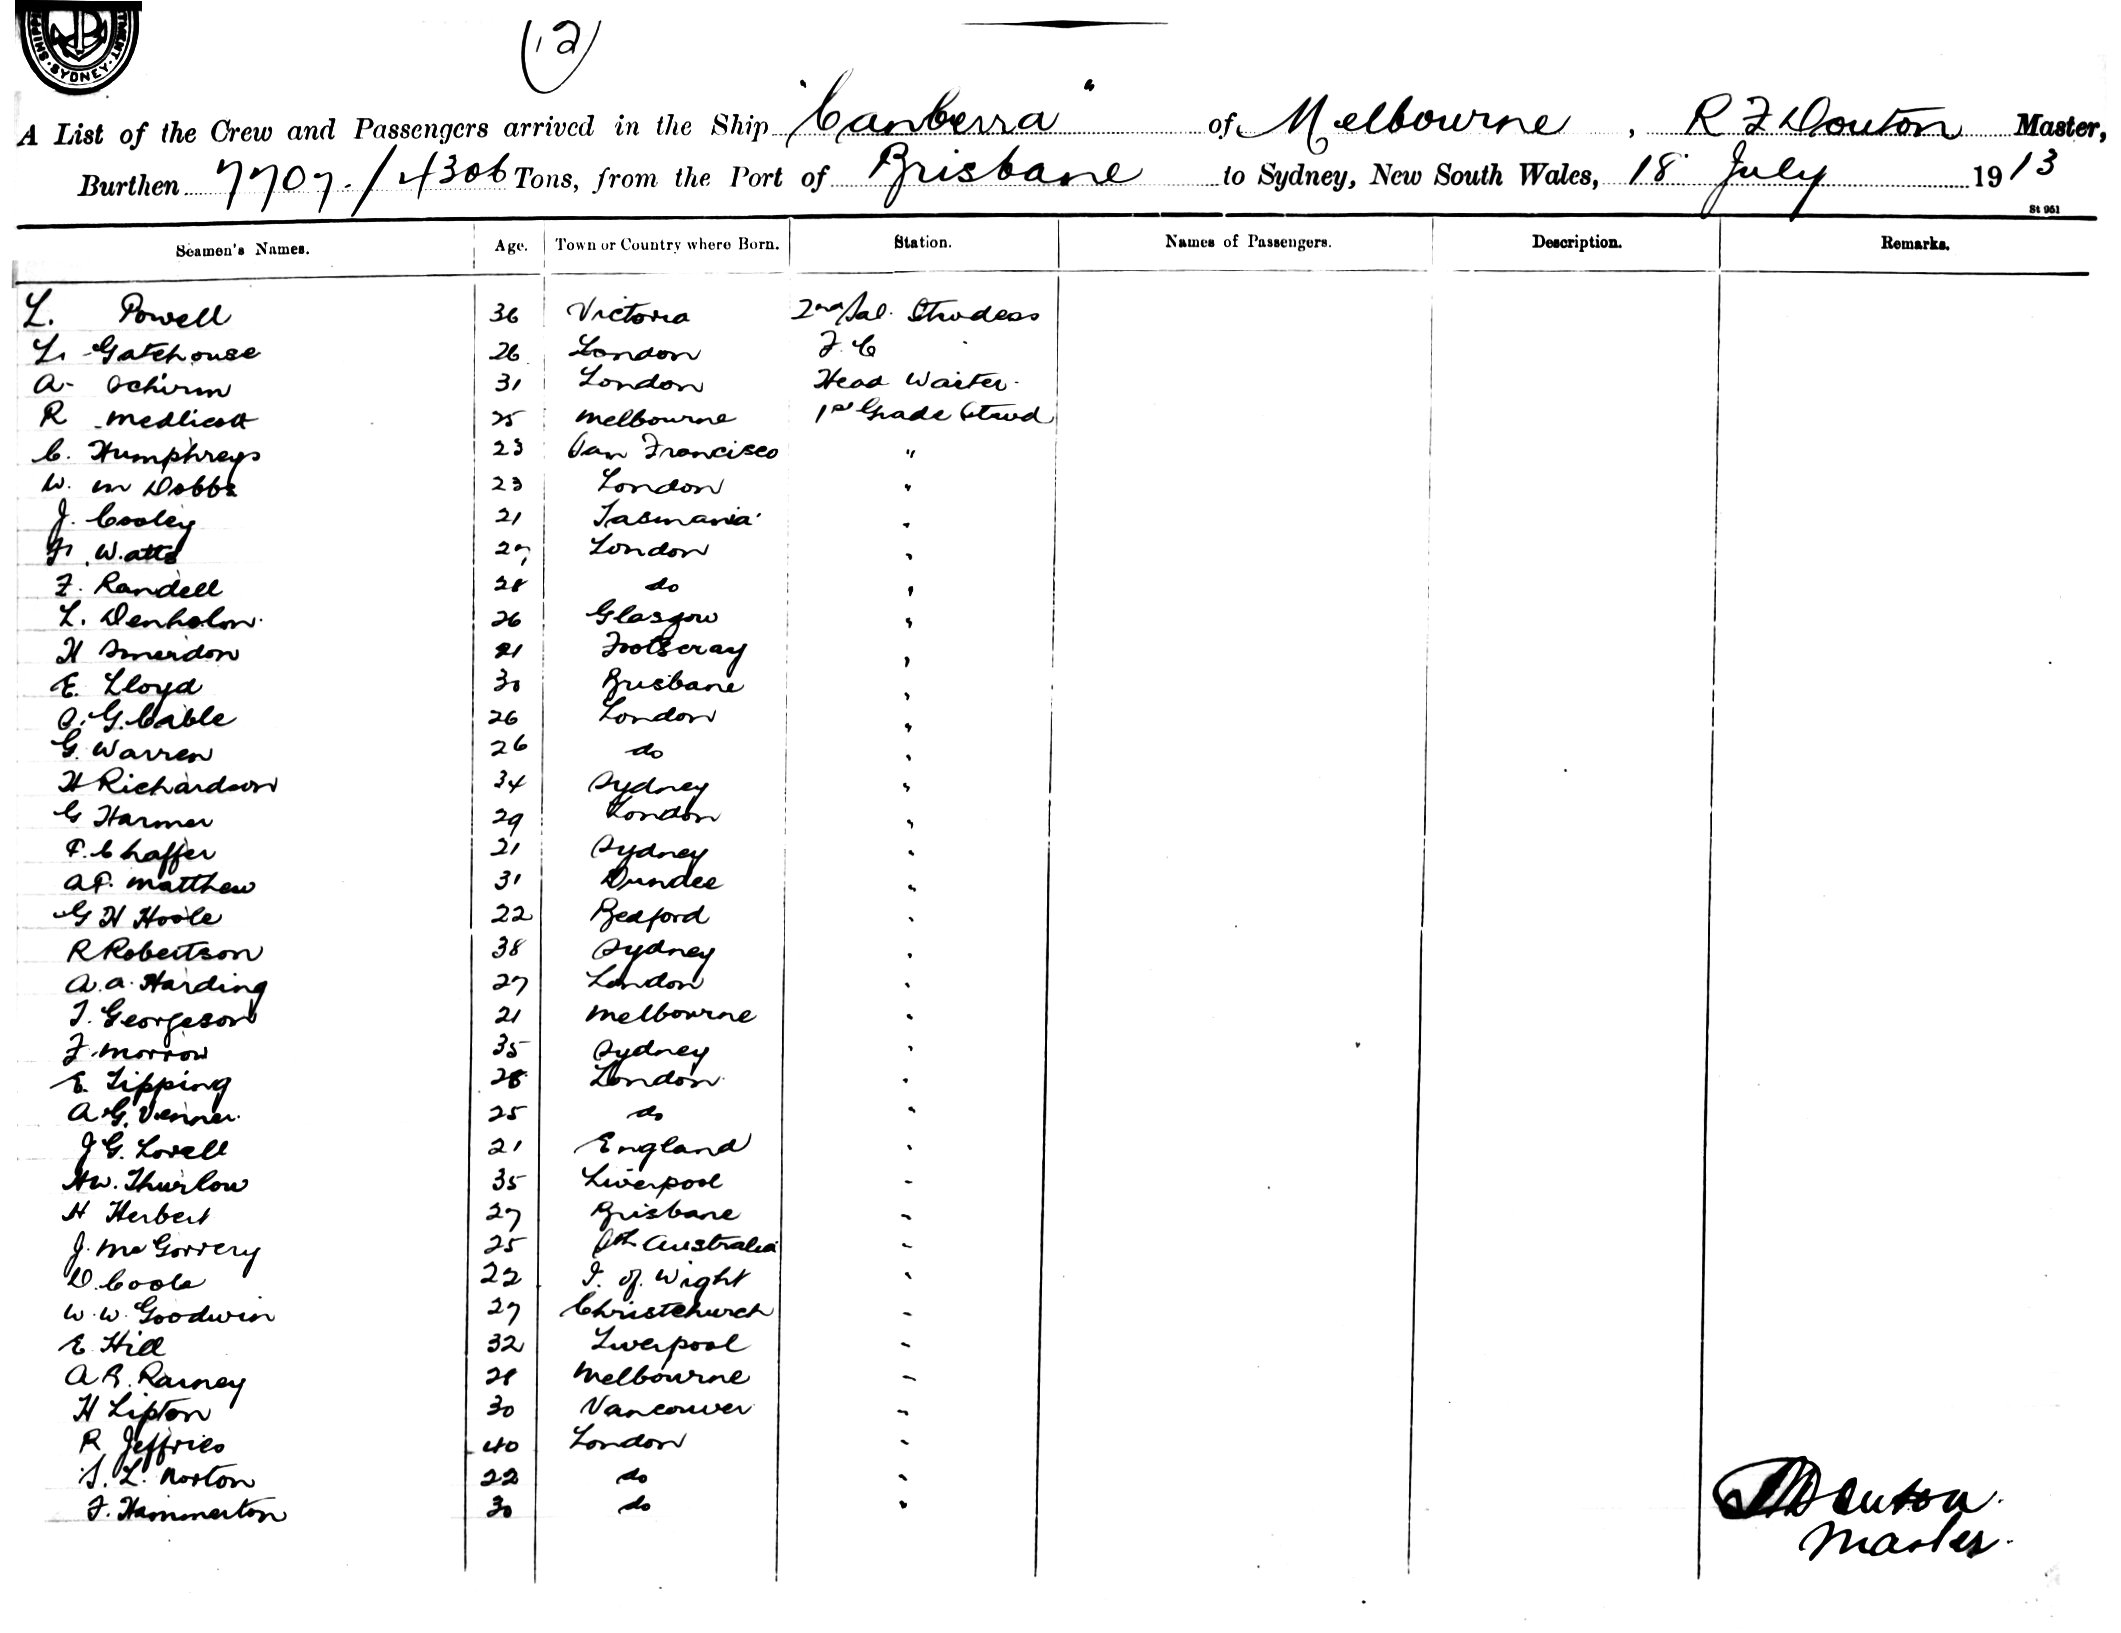 SHIPPING SYDNEY
(12)
A List of the Crew and Passengers arrived in the Ship "Canberra" of Melbourne, R F Douton Master,
Burthen 7707/4306 Tons, from the Port of Brisbane to Sydney, New South Wales, 18 July 1913
St 961
Seamen's Names. Age. Town or Country where Born. Station. Names of Passengers. Description. Remarks.
L. Powell 36 Victoria 2nd Sal. Stwdess
L. Gatehouse 26 London F. C
A. Schirm 31 London Head Waiter
R Medlicott 25 Melbourne 1st Grade Stwd
C. Humphreys 23 San Francisco "
W. M Dobbs 23 London "
J. Cooley 21 Tasmania "
F. Watts 27 London "
F. Randell 28 do "
L. Denholm 26 Glasgow "
H Smerdon 21 Footscray "
E. Lloyd 30 Brisbane "
A. G. Cable 26 London "
G. Warren 26 do "
H Richardson 34 Sydney "
G Harmer 29 London "
P. Chaffer 21 Sydney "
A P. Matthew 31 Dundee "
G H Hoole 22 Bedford "
R Robertson 38 Sydney "
A. A. Harding 27 London "
T. Georgeson 21 Melbourne "
F. Morrow 35 Sydney "
E Tipping 28 London "
A. G. Venner 25 do "
J G. Lovell 21 England "
H W. Thurlow 35 Liverpool "
H Herbert 27 Brisbane "
J. McGorrery 25 Sth Australia "
D. Coole 22 I. of Wight "
W. W. Goodwin 27 Christchurch "
E Hill 32 Liverpool "
A R. Rainey 28 Melbourne "
H Lipton 30 Vancouver "
R Jeffries 40 London "
S. L. Norton 22 do "
F. Hammerton 30 do "
Douton
Master.